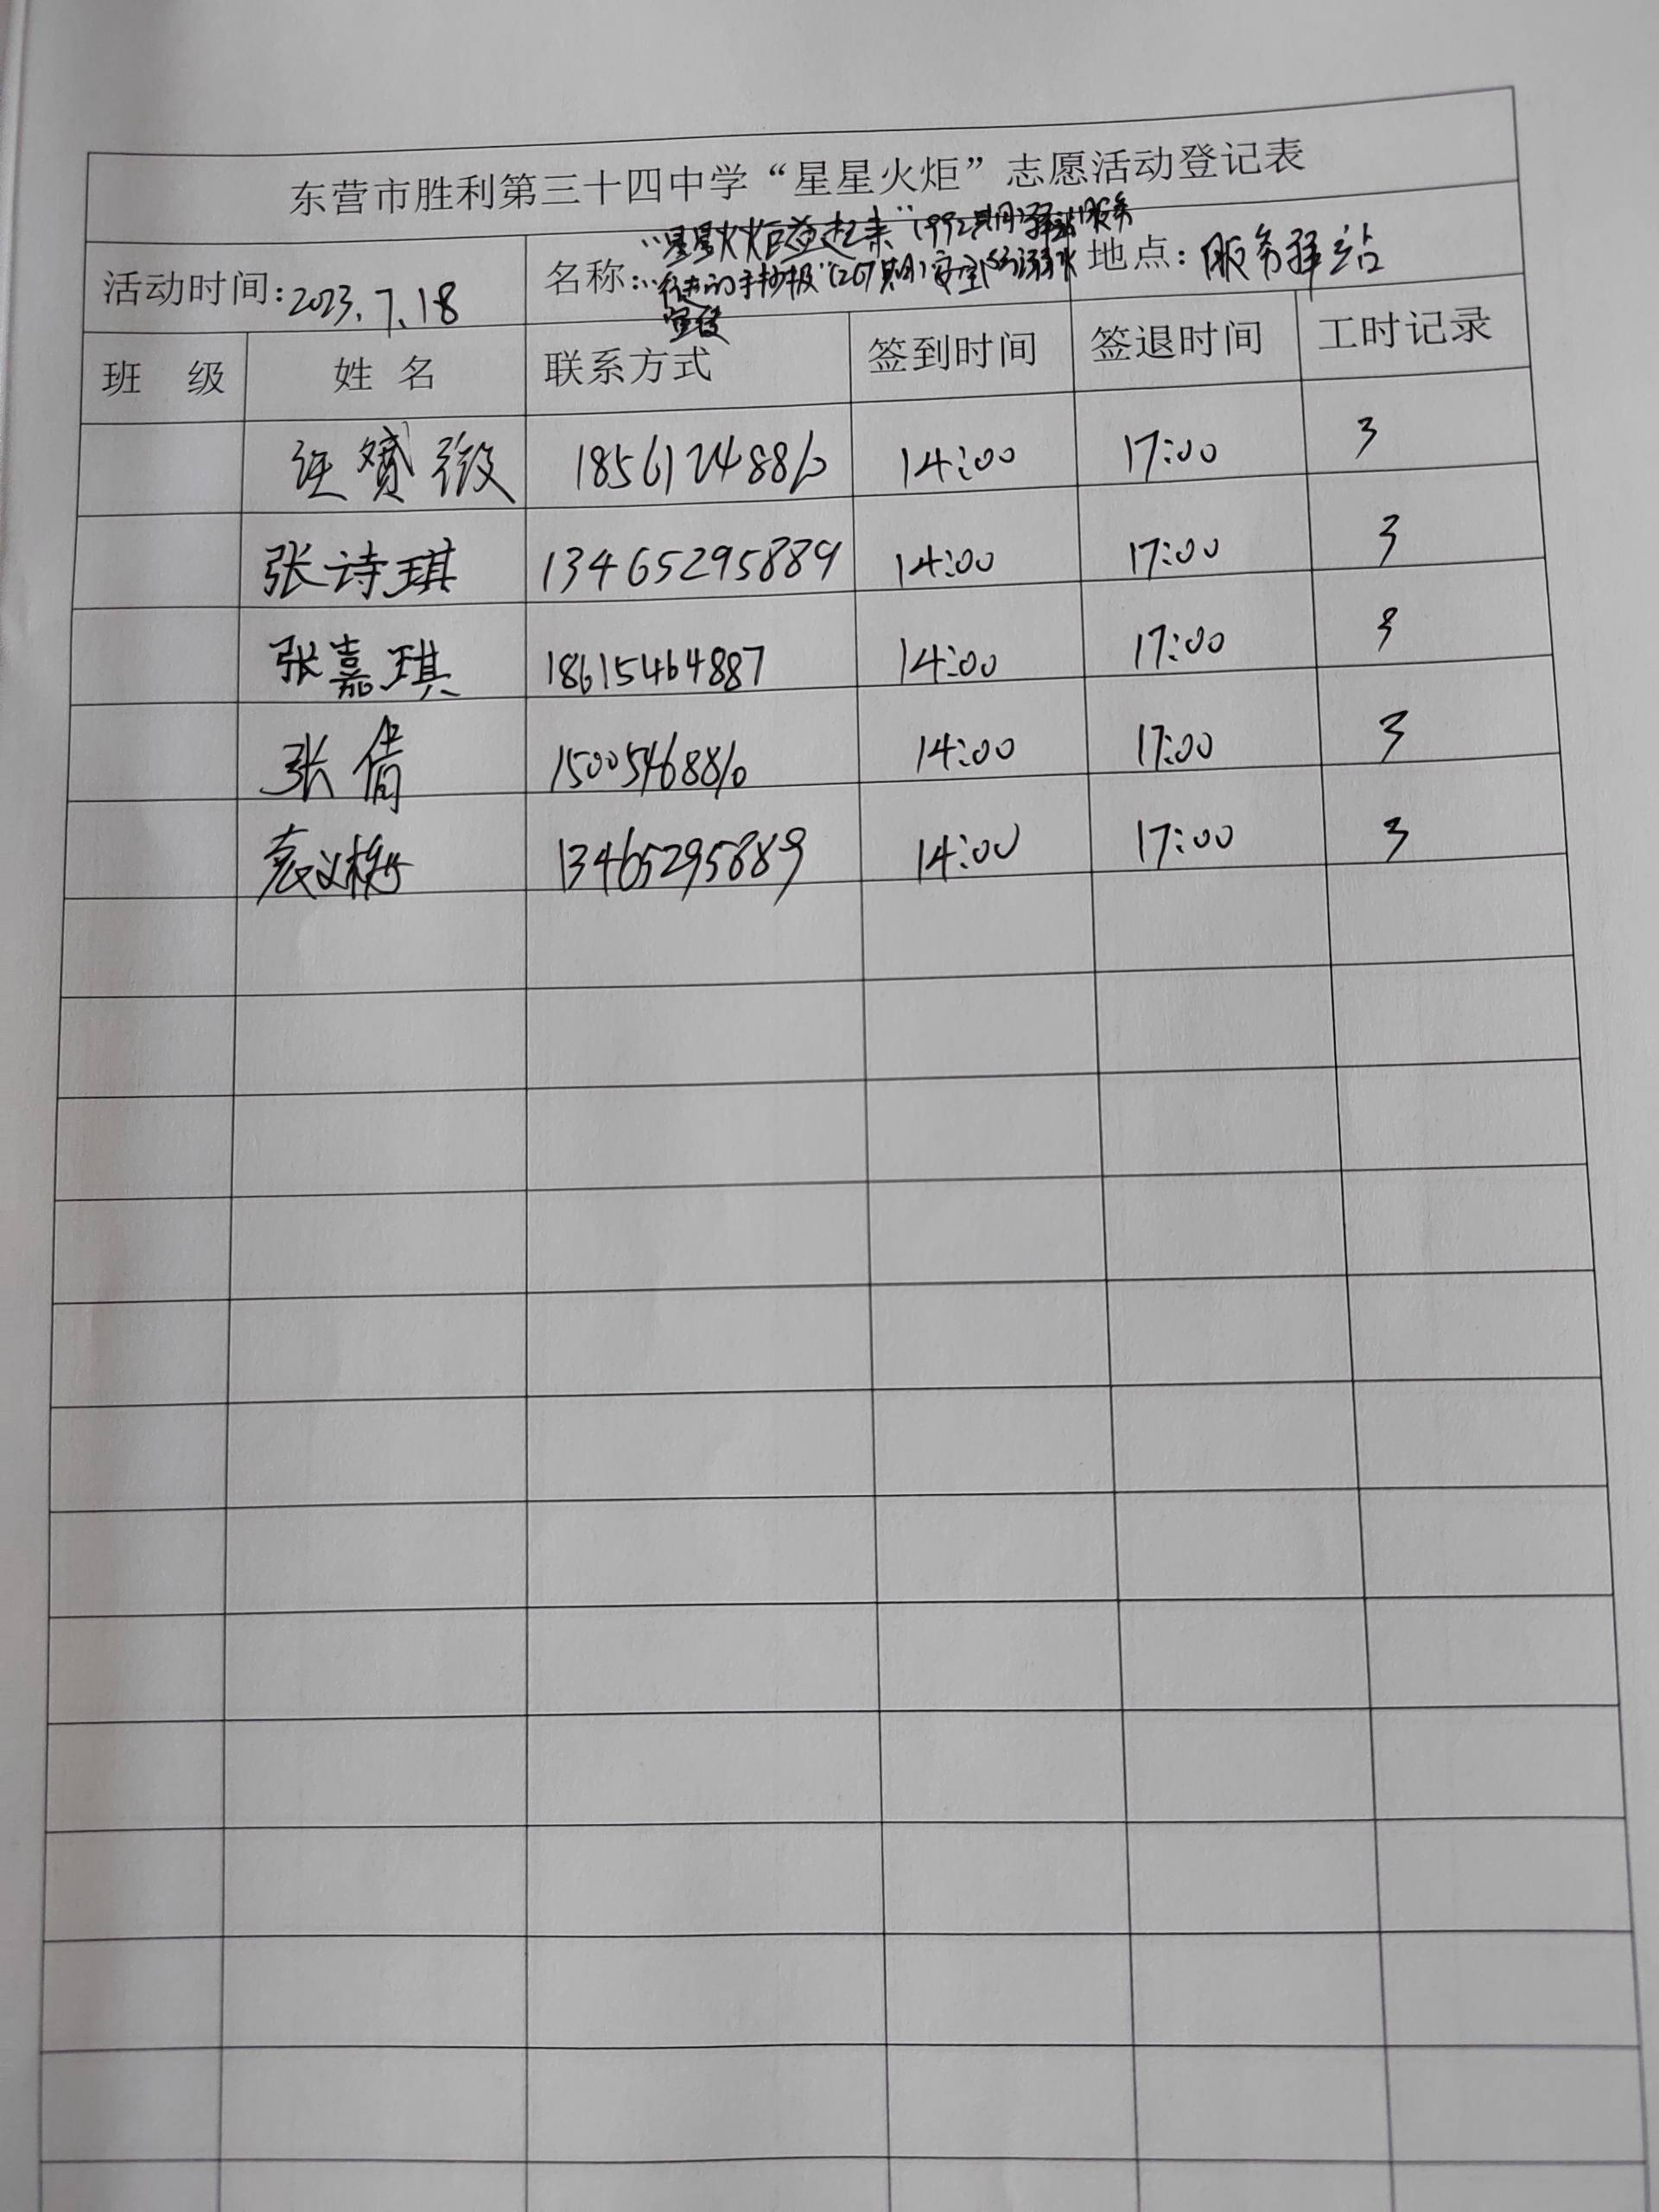 东营市胜利第三十四中学“星星火炬”志愿活动登记表
活动时间:2023.7.18 名称: “星星火炬 起来”(992期)驿站服务 地点:服务驿站
“行走的手抄报”(267期)安全防溺水
宣传
班 级 姓 名 联系方式 签到时间 签退时间 工时记录
18561248860 14:00 17:00 3
张诗琪 13465295889 14:00 17:00 3
张嘉琪 18615464887 14:00 17:00 3
张倩 15005468810 14:00 17:00 3
袁义梅 13465295889 14:00 17:00 3